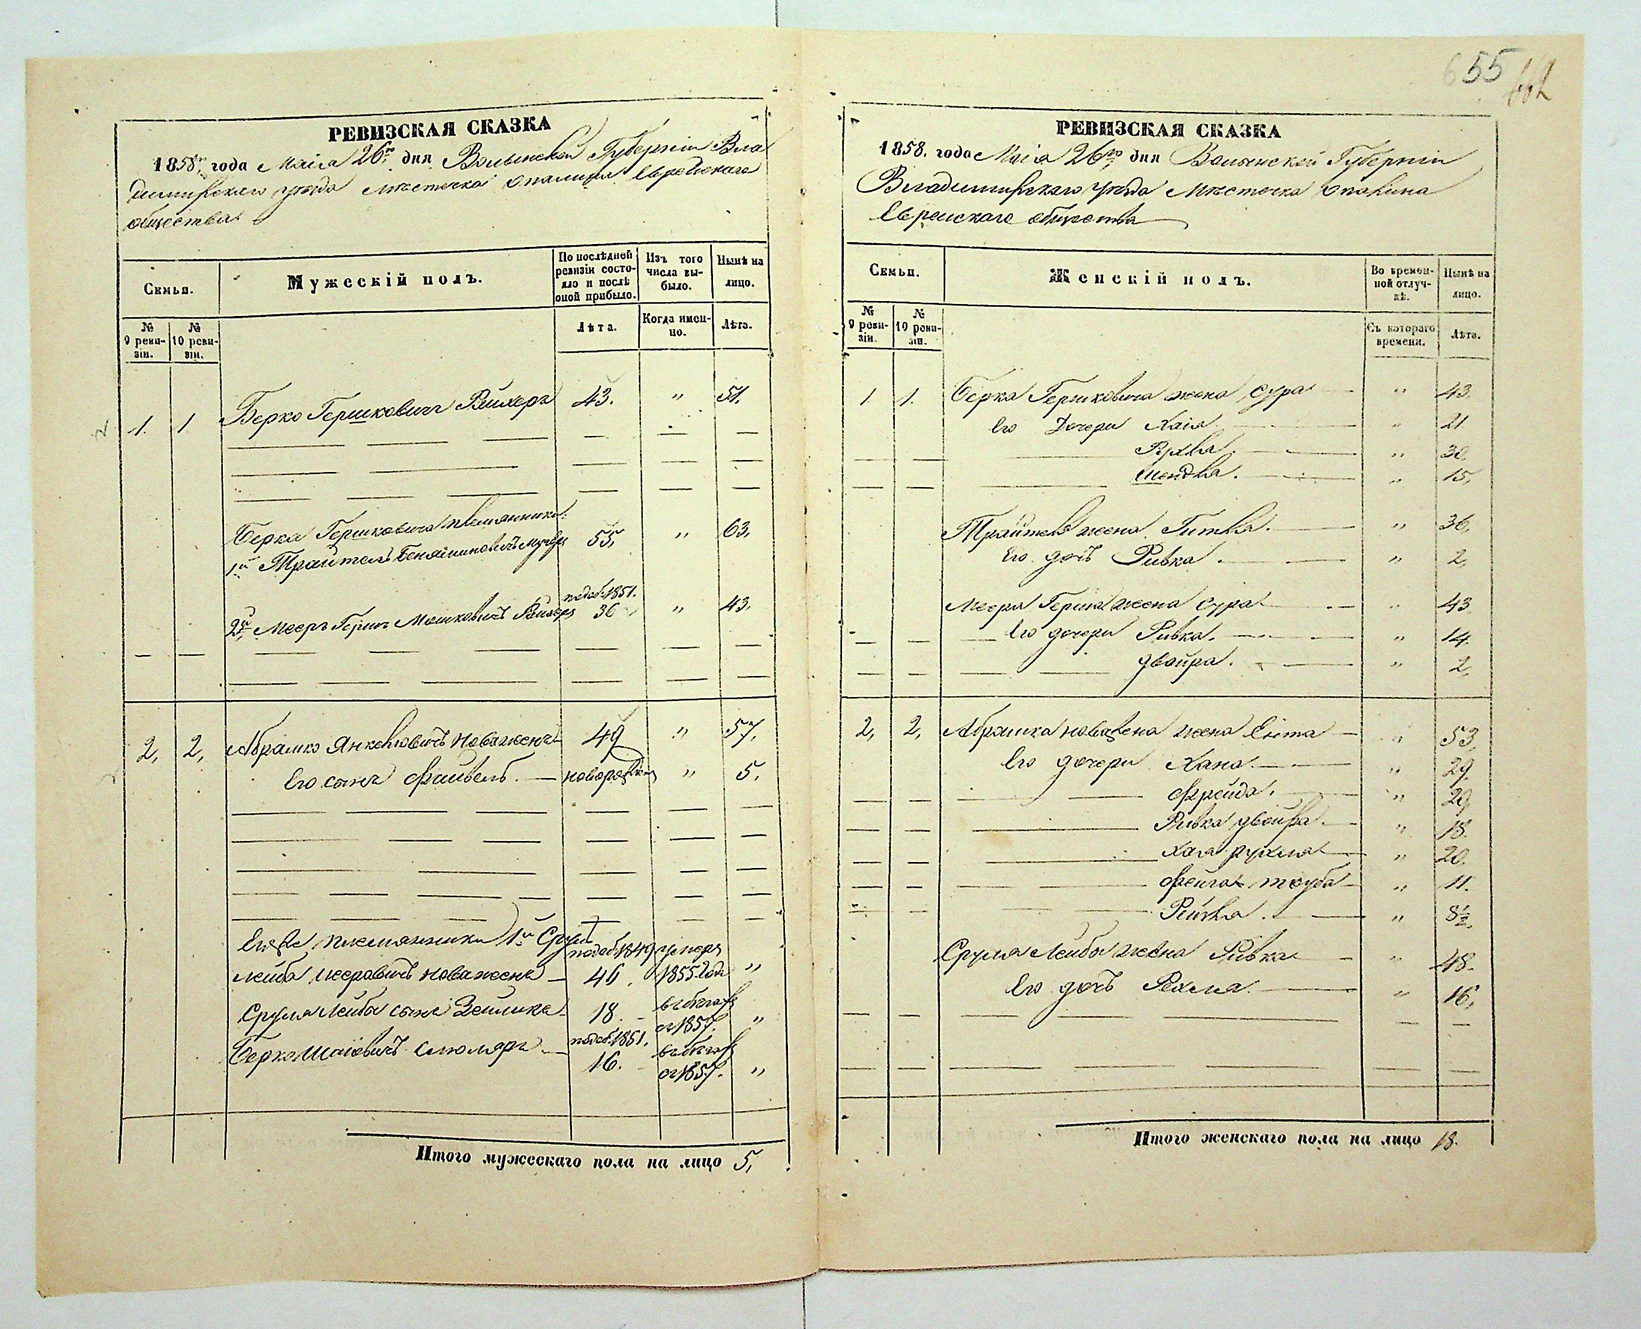 655
РЕВИЗСКАЯ СКАЗКА
1858 года Маія 26го дня Волынской Губерніи Вла
димирскаго уѣзда Мѣстечка Опалина Еврейскаго
общества
Семьи.
Мужескій полъ.
По послѣдней ревизіи состояло и послѣ оной прибыло.
Изъ того числа выбыло.
Нынѣ на лицо.
№ 9 ревизіи.
№ 10 ревизіи.
Лѣта.
Когда именно.
Лѣта.
1 1 Берко Гершковичъ 43. " 51.
Берка Гершковича племянники:
1й Трайтель Беніаминовичъ 55, " 63,
2й Мееръ Гершъ Мошковичъ подоб. 1851. 36 " 43.
2, 2, Абрамко Янкелювичъ 49 " 57,
Его сынъ Файвель — новорожден " 5.
Его же племянники 1й Сруль
Лейба Мееровичъ — подоб. 1849 46. умеръ 1855 года "
Сруля Лейбы сынъ Зейлика 18. — въ бѣгахъ съ 1857. "
Берко Шаіовичъ Столяръ — подоб. 1851. 16. въ бѣгахъ съ 1857. "
Итого мужескаго пола на лицо 5,
РЕВИЗСКАЯ СКАЗКА
1858. года Маія 26го дня Волынской Губерніи
Владимирскаго уѣзда Мѣстечка Опалина
Еврейскаго общества
Семьи.
Женскій полъ.
Во временной отлучкѣ.
Нынѣ на лицо.
№ 9 ревизіи.
№ 10 ревизіи.
Съ котораго времени.
Лѣта.
1 1. Берка Гершковича жена Сура — " 43.
Его Дочери Хаія " 21
Рухля. — " 30.
Шендля. — " 15,
Трайтеля жена Гитля. — " 36.
Его дочь Ривка. — " 2,
Меера Герша жена Сура — " 43
Его дочери Ривка. — " 14.
Двойра. — " 2,
2, 2, Абрамка жена Ента — " 53,
Его дочери Хана. — " 29.
Фрейда. — " 29,
Ривка Двойра — " 18.
Хая Рухля — " 20.
Фейга Тауба — " 11.
" 8½
Сруля Лейбы жена Ривка — " 48.
Его дочь Рахля. — " 16.
Итого женскаго пола на лицо 18.